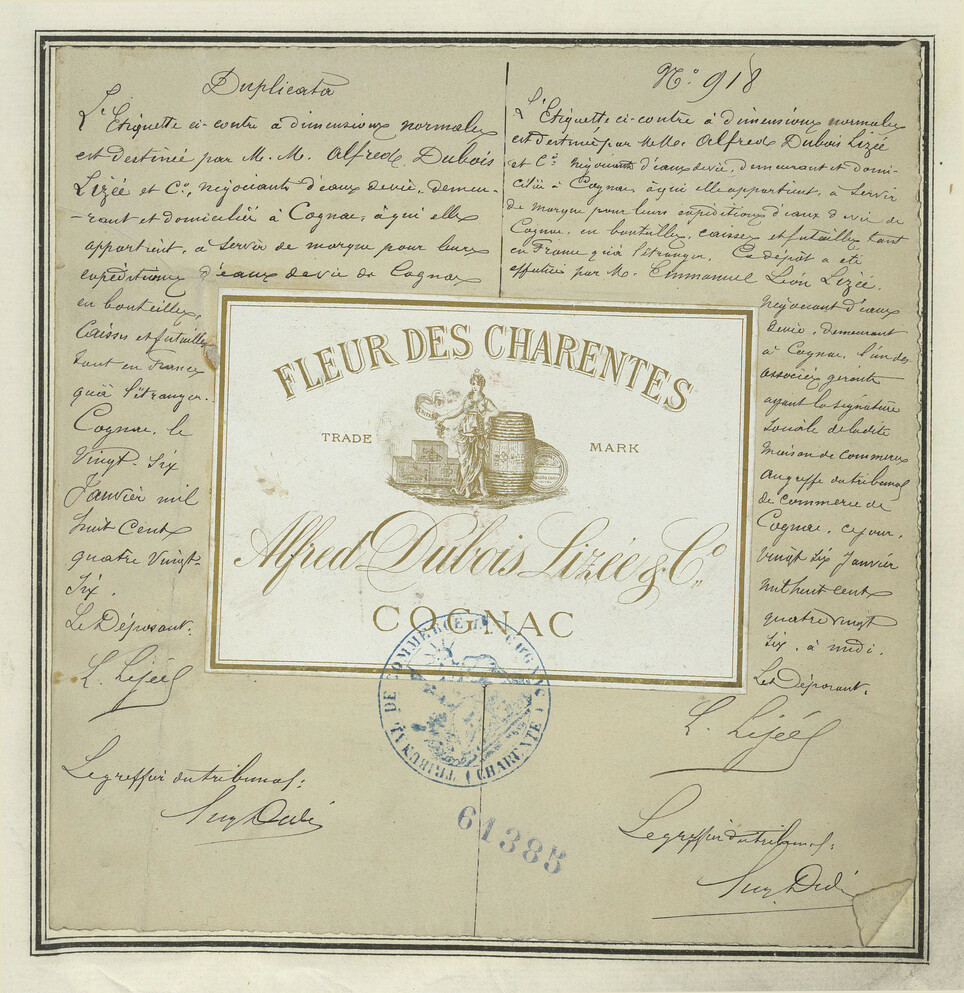 Duplicata
L'Etiquette ci-contre à dimensions normales
est destinée par M. M. Alfred Dubois
Lizée et Cº, négociants d'eaux de vie, demeu-
-rant et domiciliés à Cognac, à qui elle
appartient, à servir de marque pour leurs
expéditions d'eaux de vie de Cognac
en bouteilles,
Caisses et futailles
tant en France
qu'à l'étranger.
Cognac, le
Vingt-Six
Janvier mil
huit Cent
quatre Vingt-
Six.
Le Déposant.
L. Lizée
Le greffier du tribunal:
Nº 918
L'Etiquette ci-contre à dimensions normales
est destinée par MM. Alfred Dubois Lizée
et Cº négociants d'eaux de vie, demeurant et domi-
ciliés à Cognac, à qui elle appartient, à servir
de marque pour leurs expéditions d'eaux de vie de
Cognac, en bouteilles, caisses et futailles tant
en France qu'à l'étranger. Ce dépôt a été
effectué par M. Emmanuel Léon Lizée,
négociant d'eaux
de vie, demeurant
à Cognac, l'un des
associés gérants
ayant la signature
sociale de ladite
maison de commerce
au greffe du tribunal
de commerce de
Cognac, ce jour,
vingt six Janvier
mil huit cent
quatre vingt
six, à midi.
Le Déposant.
L. Lizée
Le greffier du tribunal:
FLEUR DES CHARENTES
TRADE MARK
Alfred Dubois Lizée & Cº
COGNAC
TRIBUNAL DE COMMERCE DE COGNAC
(CHARENTE)
61385